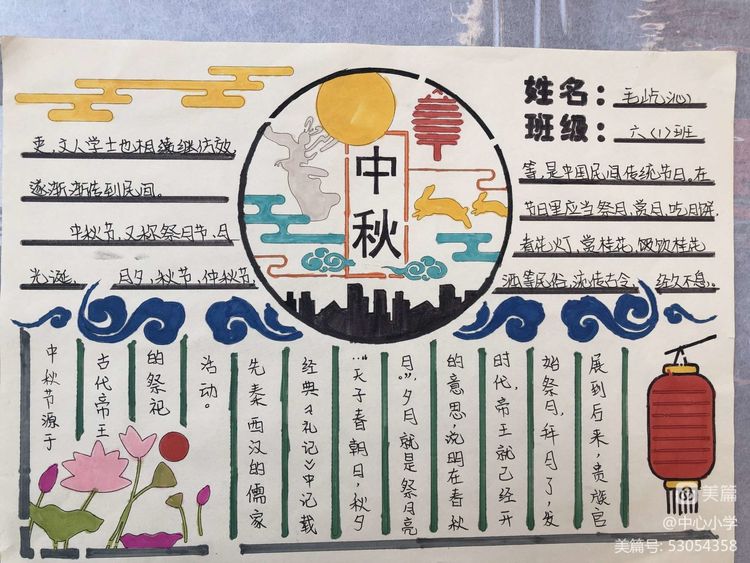 姓名：毛屹沁
班级：六（1）班
中秋
吏，文人学士也相续继仿效，
逐渐渐传到民间。
中秋节，又称祭月节、月
光诞、月夕，秋节，仲秋节
等，是中国民间传统节日。在
节日里应当祭月，赏月，吃月饼，
看花灯，赏桂花，饮桂花
酒等民俗，流传古今，经久不息。
中秋节源于
古代帝王
的祭祀
活动。
先秦西汉的儒家
经典《礼记》中记载
“天子春朝日，秋夕
月”，夕月就是祭月亮
的意思，说明在春秋
时代，帝王就已经开
始祭月，拜月了，发
展到后来，贵族官
美篇
@中心小学
美篇号：53054358